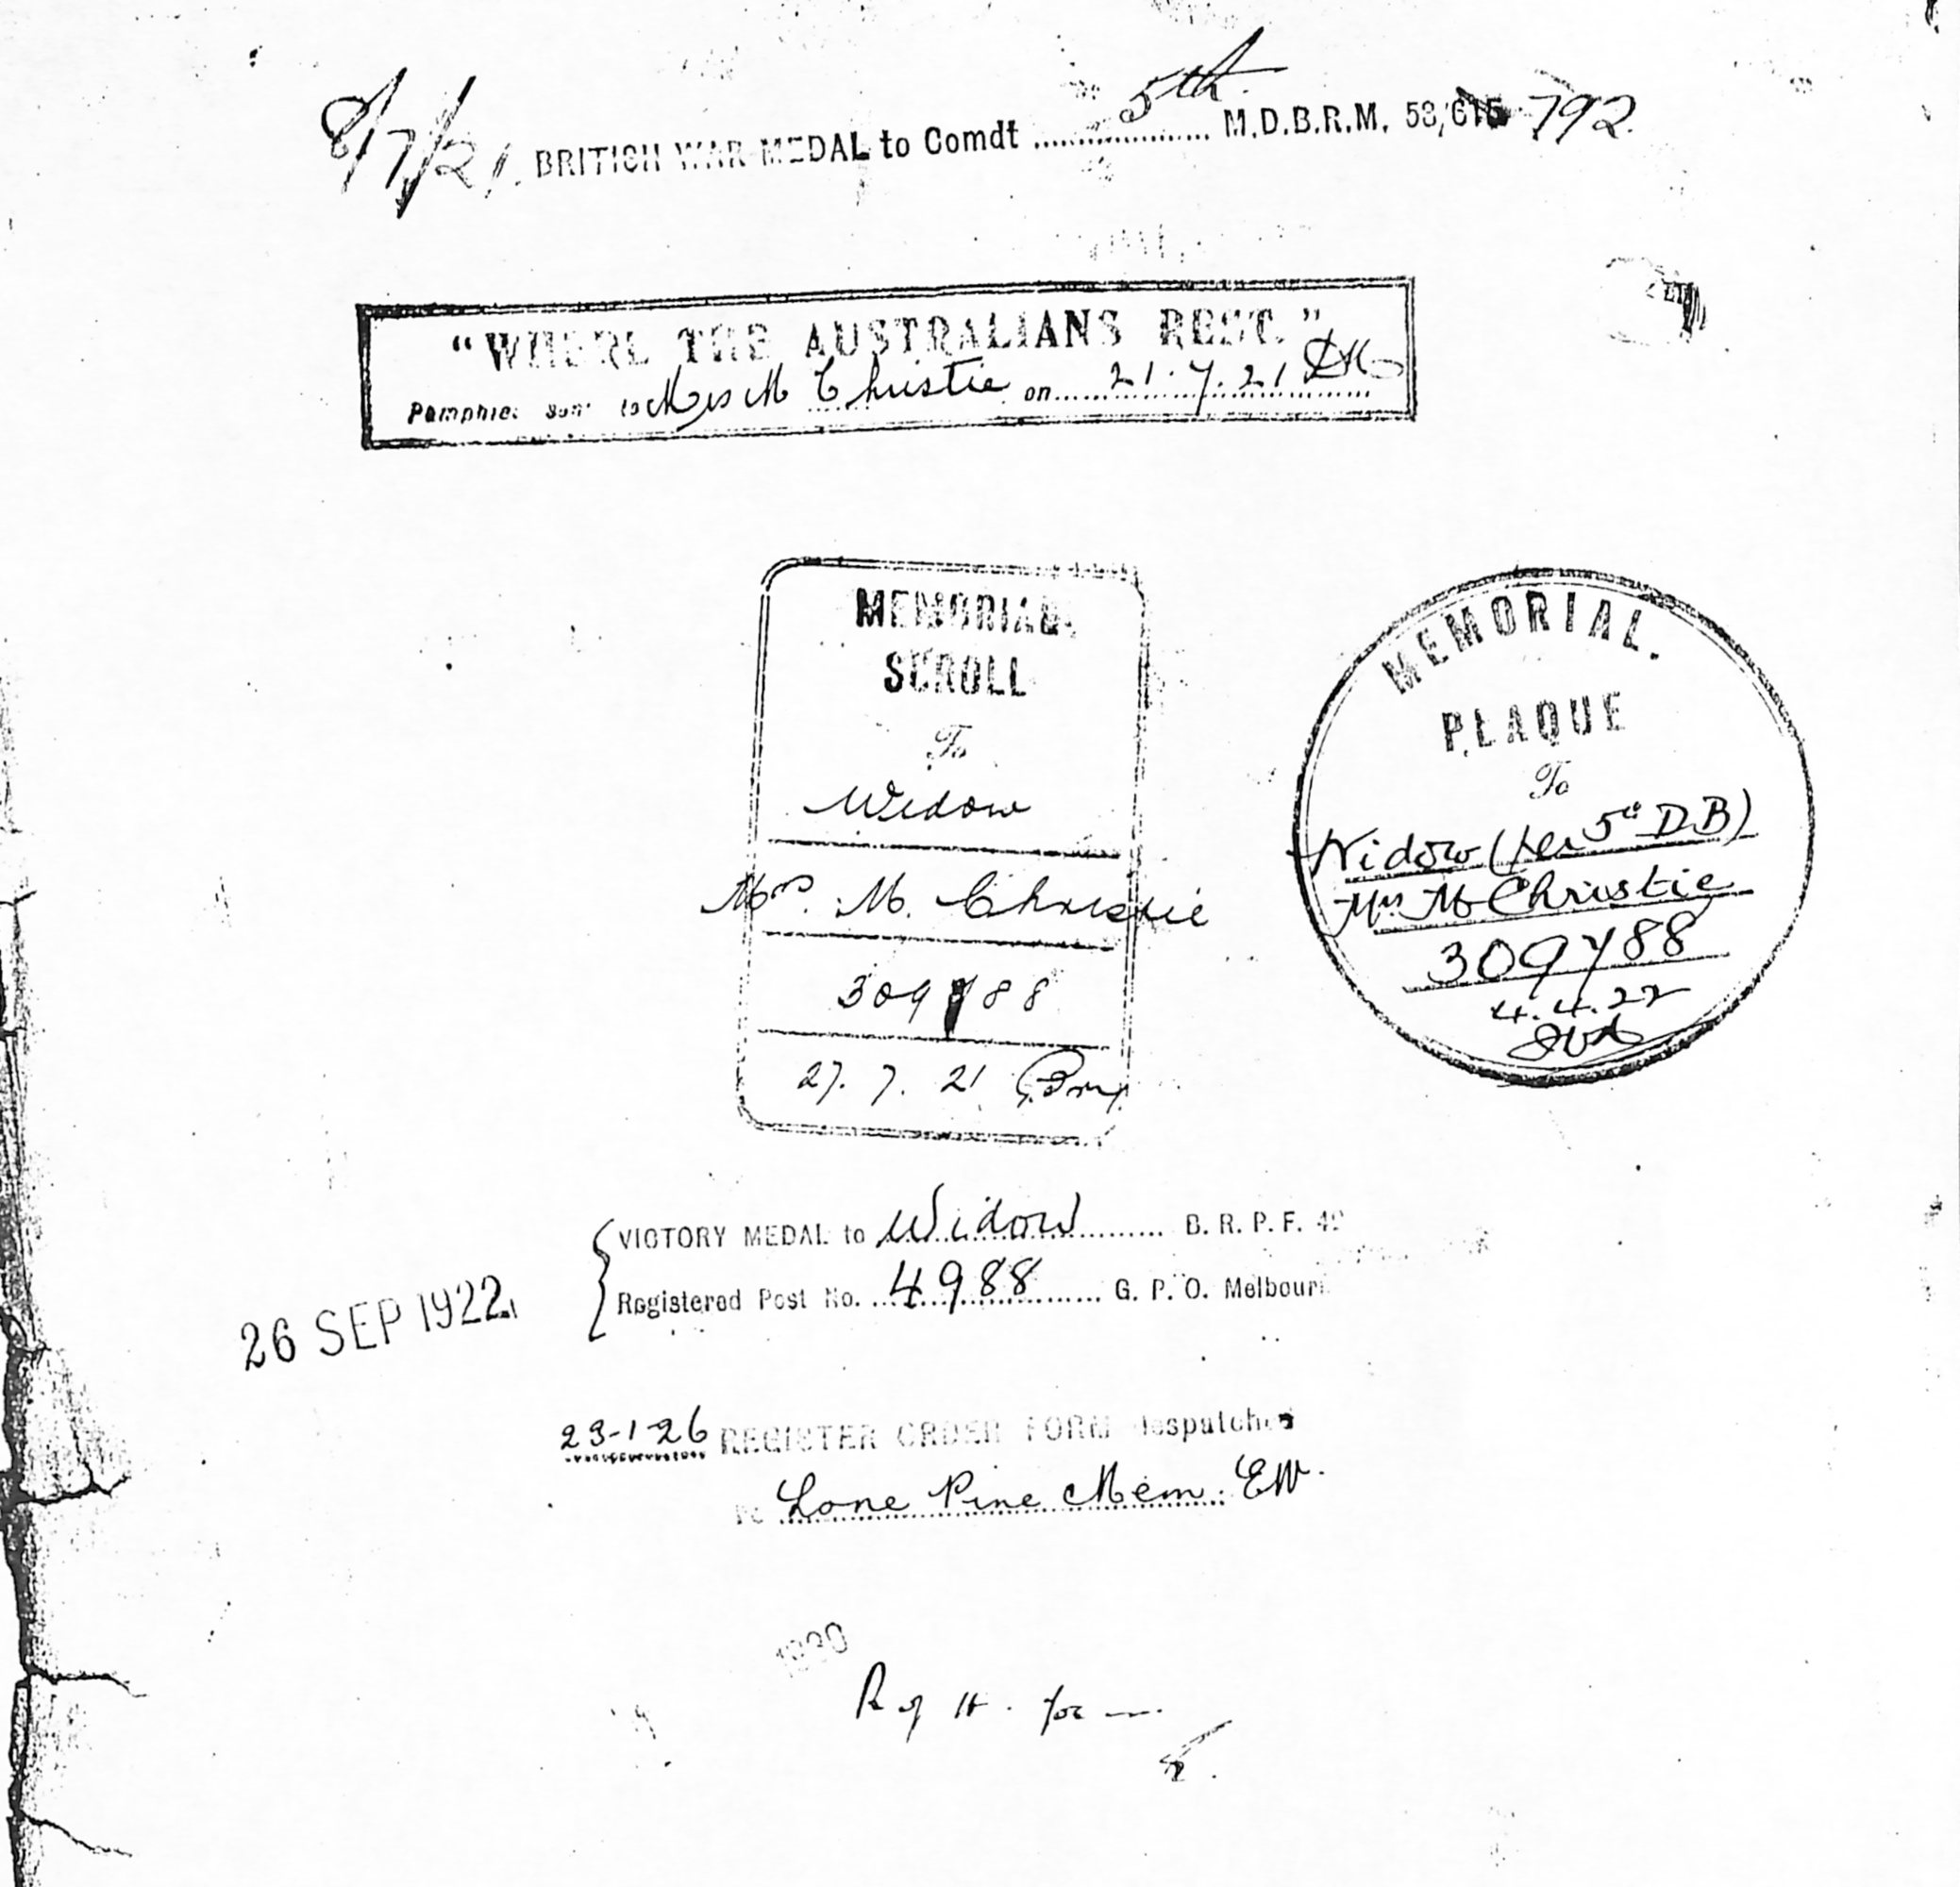 8/7/21. BRITISH WAR MEDAL to Comdt 5th M.D.B.R.M. 53,615 792.
"WHERE THE AUSTRALIANS REST."
Pamphlet sent to Mrs M Christie on 21.7.21
MEMORIAL
SCROLL
To
Widow
Mrs. M. Christie
309788
27.7.21
MEMORIAL.
PLAQUE
To
Widow (per 5th DB)
Mrs M Christie
309788
4.4.22
VICTORY MEDAL to Widow B. R. P. F.
Registered Post No. 4988 G. P. O.
26 SEP 1922
23-1-26 REGISTER ORDER FORM despatched
re Lone Pine Mem. EW.
R of H. for